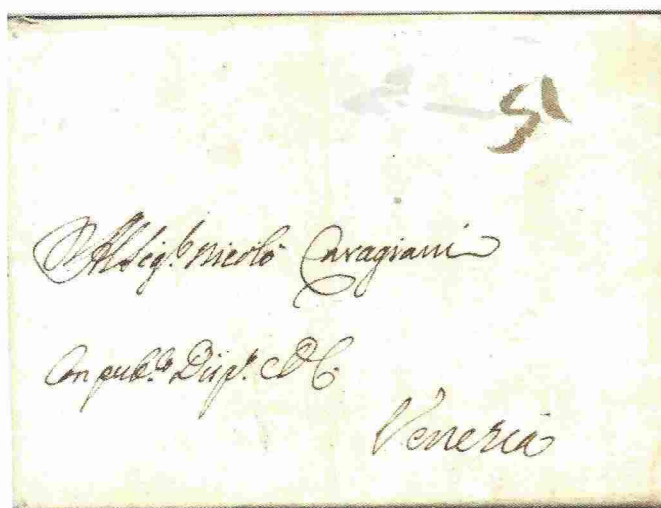 51
Al Sig.r Nicolò Caragiani
Con pub.co Disp.
Venezia